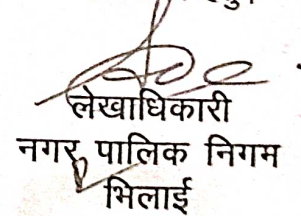 लेखाधिकारी
नगर पालिक निगम
भिलाई